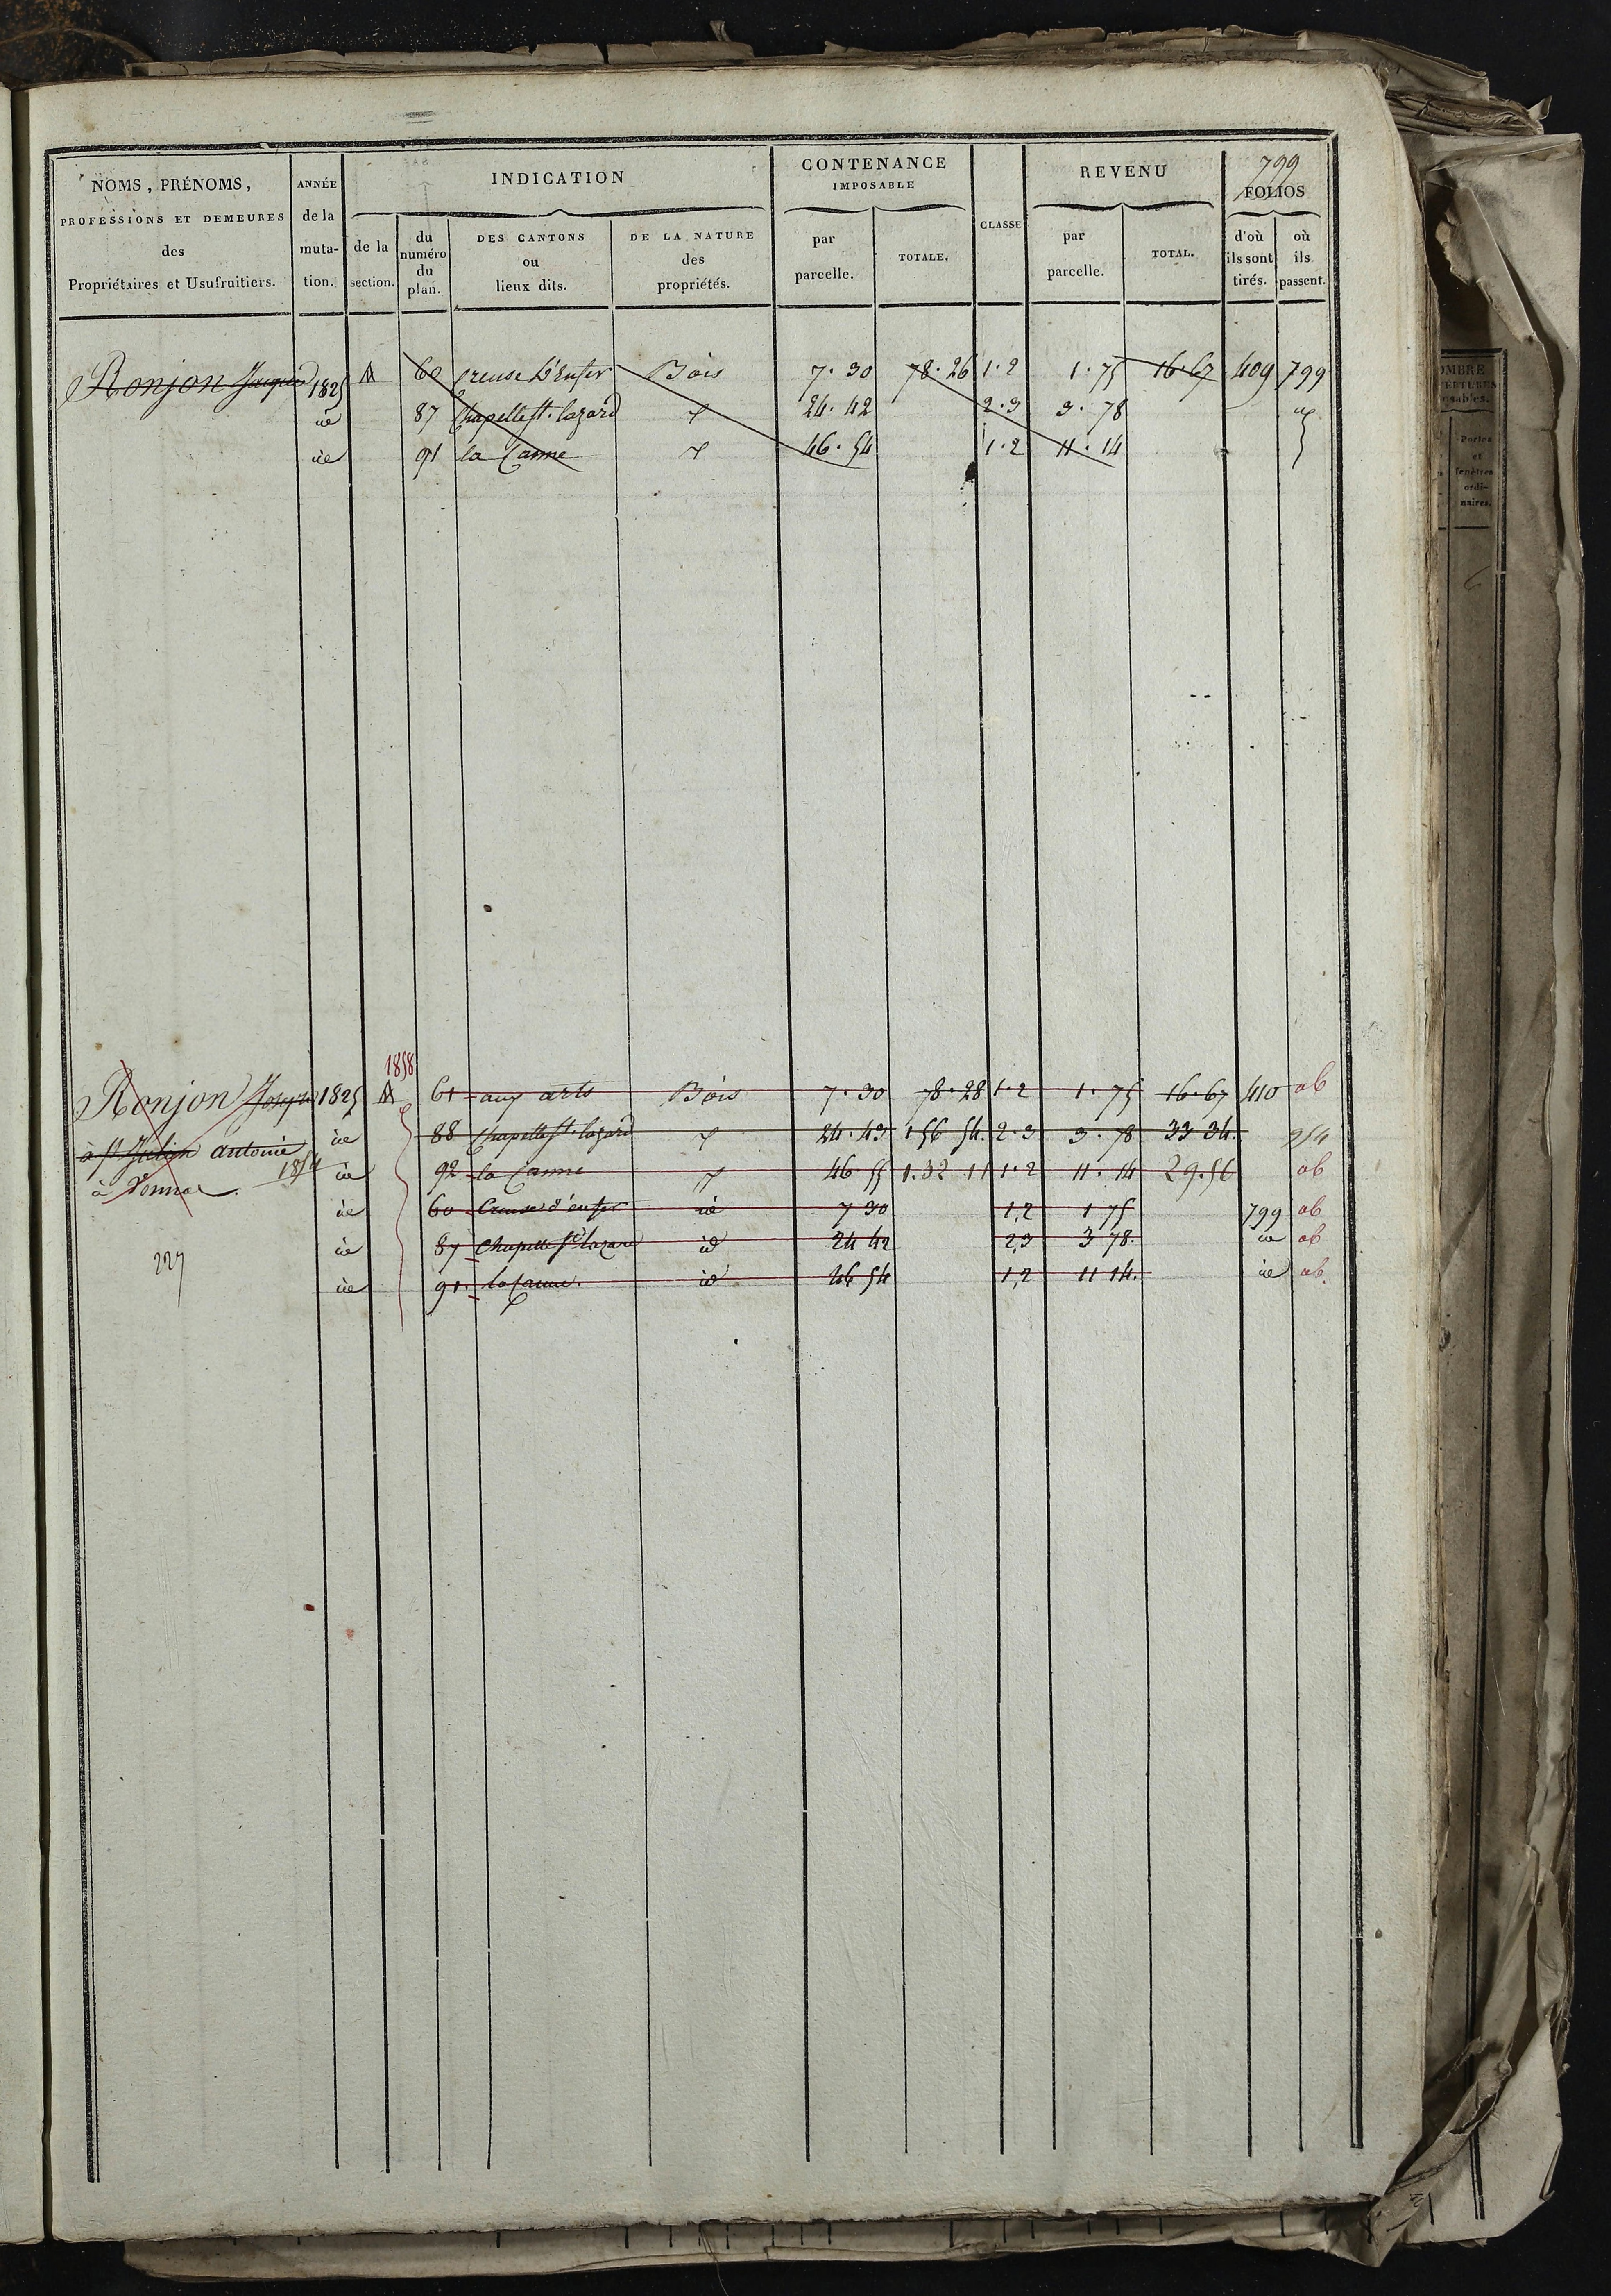 799
NOMS, PRÉNOMS, PROFESSIONS ET DEMEURES des Propriétaires et Usufruitiers.
ANNÉE de la muta-tion.
INDICATION
de la section.
du numéro du plan.
DES CANTONS ou lieux dits.
DE LA NATURE des propriétés.
CONTENANCE IMPOSABLE
par parcelle.
TOTALE.
CLASSE
REVENU
par parcelle.
TOTAL.
FOLIOS
d'où ils sont tirés.
où ils passent.
Ronjon Jacques 1825 M 60 Creuse D'Enfer Bois 7.30 78.26 1.2 1.75 16.67 409 799
id 87 Chapelle St. Lazard 24.42 2.3 3.78
id 91 la Canne 46.54 1.2 11.14
1858
Ronjon Joseph 1825 M 61 aux arts Bois 7.30 78.28 1.2 1.75 16.67 410 ab
à St Julien antoine id 88 Chapelle St. Lazard 24.43 156 54. 2.3 3.78 33 34. 954
à Vonnas. 1854 id 92 la Canne 46.55 1.32 11 1.2 11.14 29.56 ab
id 60 Creuse d'enfer id 7 30 1,2 1 75 799 ab
227 id 87 Chapelle St Lazare id 24 42 2,3 3 78. id ab
id 91. la Canne. id 46 54 1,2 11 14. id ab.
OMBRE
VERTURES
osables.
Portes et fenêtres ordi-naires.